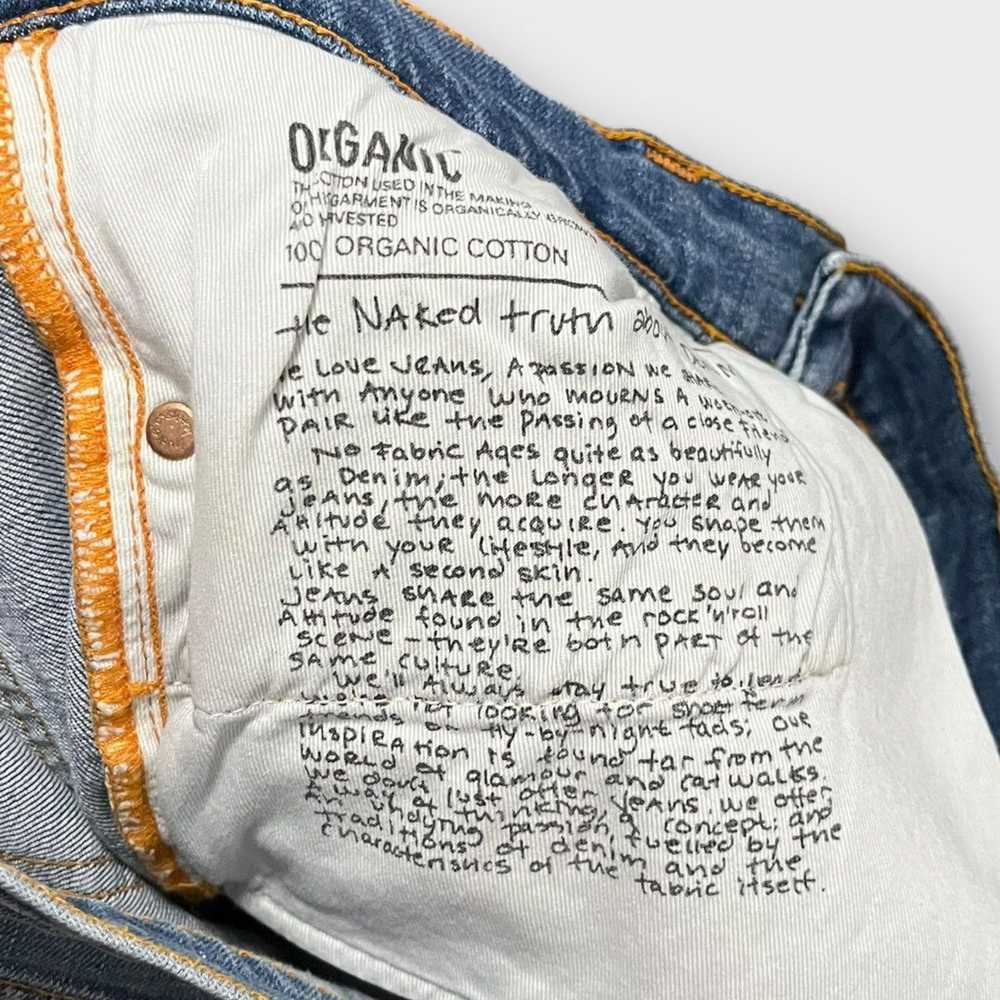 ORGANIC
THE COTTON USED IN THE MAKING
OF THIS GARMENT IS ORGANICALLY GROWN
AND HARVESTED
100 ORGANIC COTTON
the NAKed truth about
We Love JEANS, A PASSION WE SHARE
with ANYONE WHO MOURNS A WORN-OUT
PAIR LIKE the PASSING of a close friend
No Fabric Ages quite as beautifully
as Denim; the Longer you WEAR YOUR
jeans, the more character and
Attitude they acquire. You shape them
with your Lifestyle, And they become
Like A second skin.
Jeans share the same soul and
Attitude found in the rock'n'roll
scene - they're both PART of the
SAME culture.
We'll Always stay true to
not looking for short term
trends or fly-by-night fads; our
inspiration is found far from the
world of glamour and catwalks.
We don't just offer jeans. we offer
A way of thinking, a concept; and
An undying passion fuelled by the
traditions of denim and the
characteristics of the fabric itself.